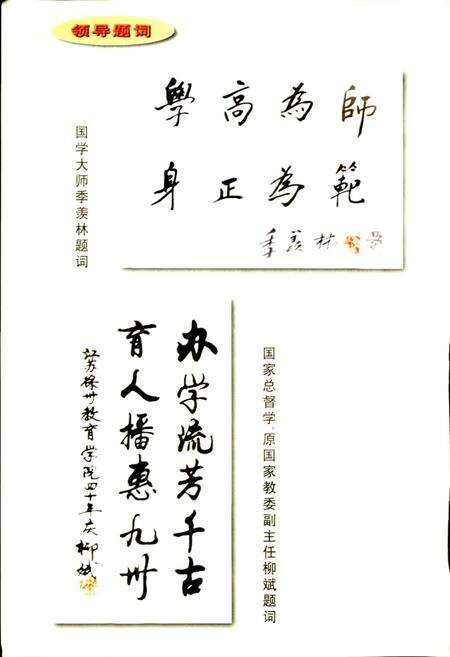 领导题词
學高為師
身正為範
季羡林
国学大师季羡林题词
办学流芳千古
育人播惠九州
江苏徐州教育学院四十年庆 柳斌
国家总督学、原国家教委副主任柳斌题词